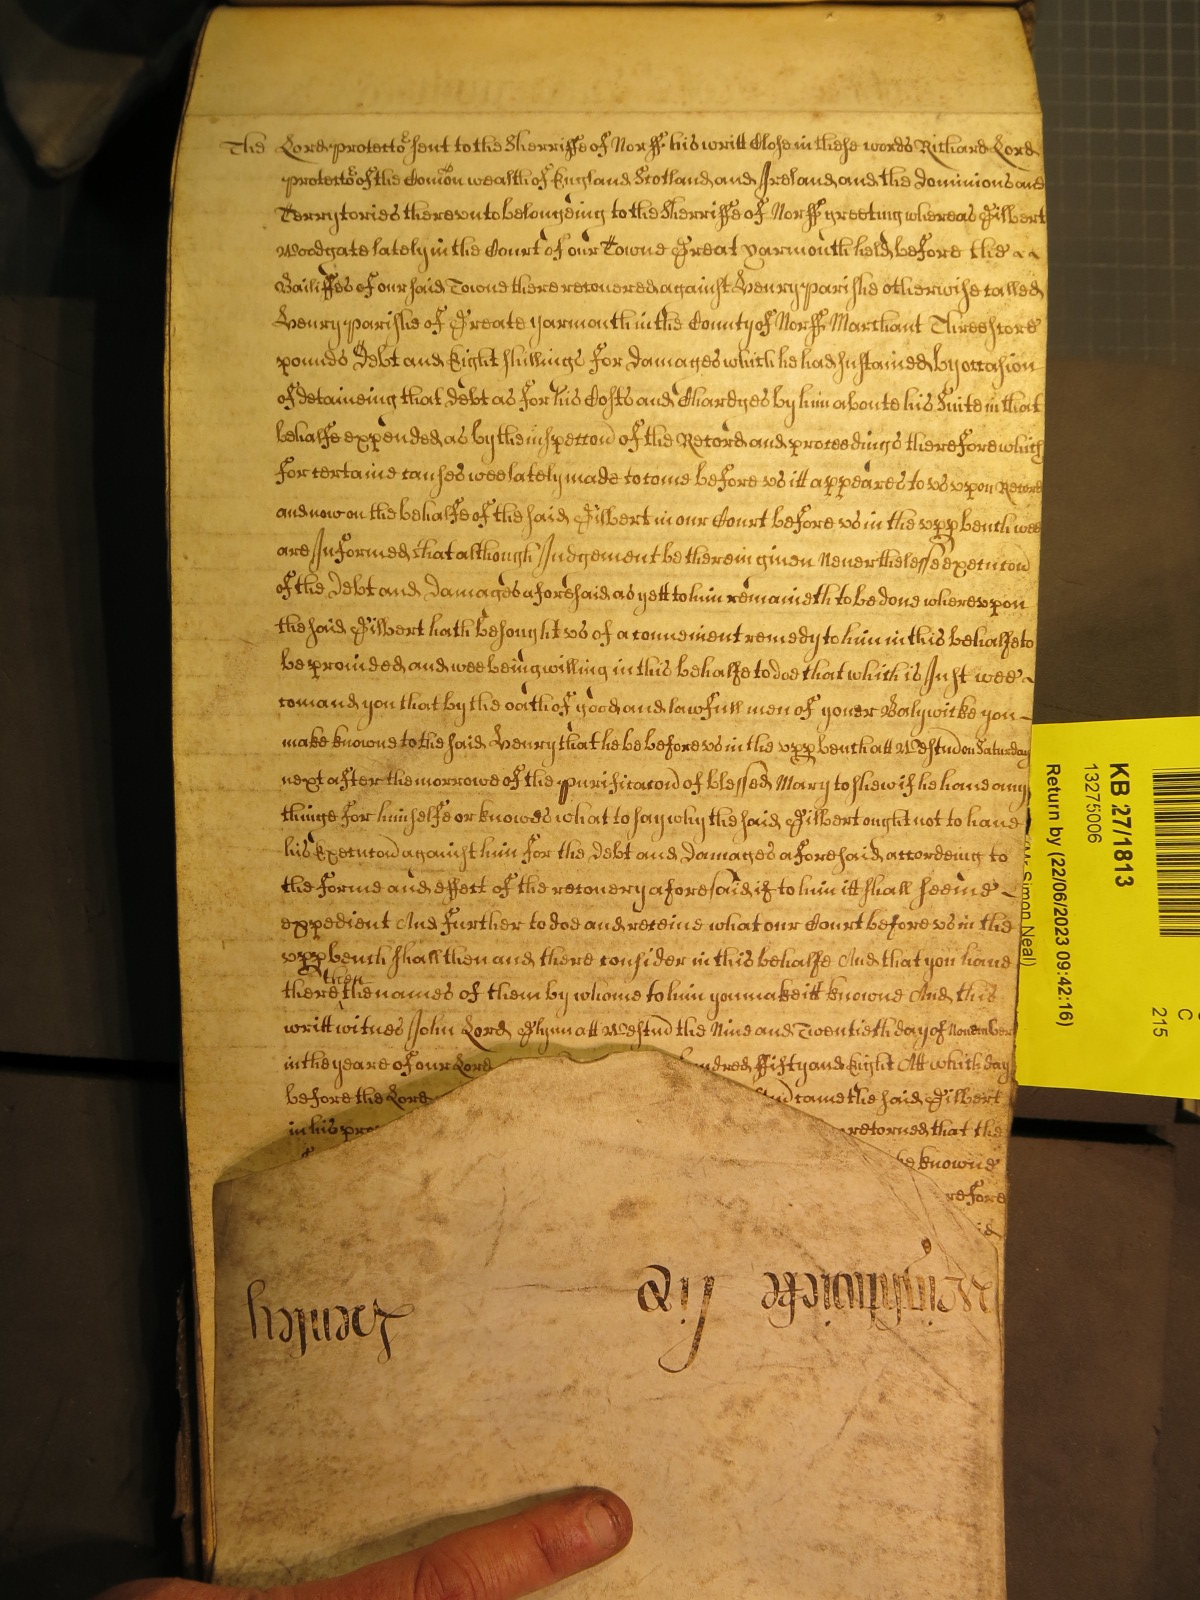 The Lord protector sent to the Sherriffe of Norff his writt Close in these words Richard Lord
protector of the Comon wealth of England Scotland and Ireland and the dominions and
Terrytories therevnto belongeing to the Sherriffe of Norff greeting whereas Gilbert
Woodgate lately in the Court of our Towne Great yarmouth held before the
Bailiffes of our said Towne there recouered against Henry parishe otherwise called
Henry parishe of Greate yarmouth in the County of Norff Marchant Threescore
pounds Debt and Eight shillings for damages which he had sustained by occasion
of detaineing that debt as for his Costs and Chardges by him aboute his Suite in that
behalfe expended as by the inspeccon of the Record and proceedings thereof which
for certaine causes wee lately made to come before vs itt appeares to vs vpon Record
and now on the behalfe of the said Gilbert in our Court before vs in the vpp bench wee
are Informed that although Iudgement be therein giuen Neuerthelesse execucon
of the Debt and Damages aforesaid as yett to him remaineth to be done wherevpon
the said Gilbert hath besought vs of a conuenient remedy to him in this behalfe to
be prouided and wee being willing in this behalfe to doe that which is Iust wee
comand you that by the oath of good and lawfull men of your Balywicke you
make knowne to the said Henry that he be before vs in the vpp bench att Westm on Saturday
next after the morrowe of the purificacon of blessed Mary to shew if he haue any
thinge for himselfe or knowes what to say why the said Gilbert ought not to haue
his Execucon against him for the debt and damages aforesaid accordeing to
the forme and effect of the recouery aforesaid if to him itt shall seeme
expedient And further to doe and receiue what our Court before vs in the
vpp bench shall then and there consider in this behalfe And that you haue
there then the names of them by whome to him you make itt knowne And this
writt witnes John Lord Glynn att Westm the Nine and Twentieth day of November
in the yeare of our Lord hundred fifty and Eight Att which day
before the Lord came the said Gilbert
in his retorned that the
knowne
KB 27/1813
13275006
Return by (22/06/2023 09:42:16)
(Mr Simon Neal)
C
215